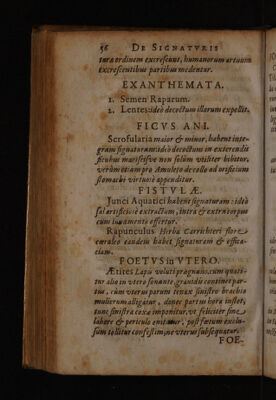 56 DE SIGNATVRIS
tura ordinem excrescunt, humanorum artuum
excrescentibus partibus medentur.
EXANTHEMATA.
1. Semen Raparum.
2. Lentes: ideò decoctum illarum expellit.
FICVS ANI.
Scrofularia maior & minor, habent inte-
gram signaturam: ideò decoctum in exterendis
ficubus mariscisve non solùm vtiliter bibitur,
verùm etiam pro Amuleto de collo ad orificium
stomachi virtuosè appenditur.
FISTVLÆ.
Junci Aquatici habent signaturam: ideò
sal artificiosè extractum, intra & extra corpus
cum iuvamento offertur.
Rapunculus Herba Carrichteri flore
cæruleo eandem habet signaturam & effica-
ciam.
FOETVS in VTERO.
Ætites Lapis veluti prægnans, cum quati-
tur alio in vtero sonante, grandulis continet par-
tus, cùm vterus parum tenax sinistro brachio
mulierum alligatur, donec partus hora instet,
tunc sinistræ coxæ imponitur, vt feliciter sine
labore & periculo enitatur: post fœtum exclu-
sum tollitur confestim, ne vterus subsequatur.
FOE-